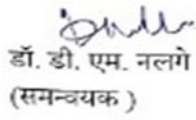 डॉ. डी. एम. नलगे
(समन्वयक )